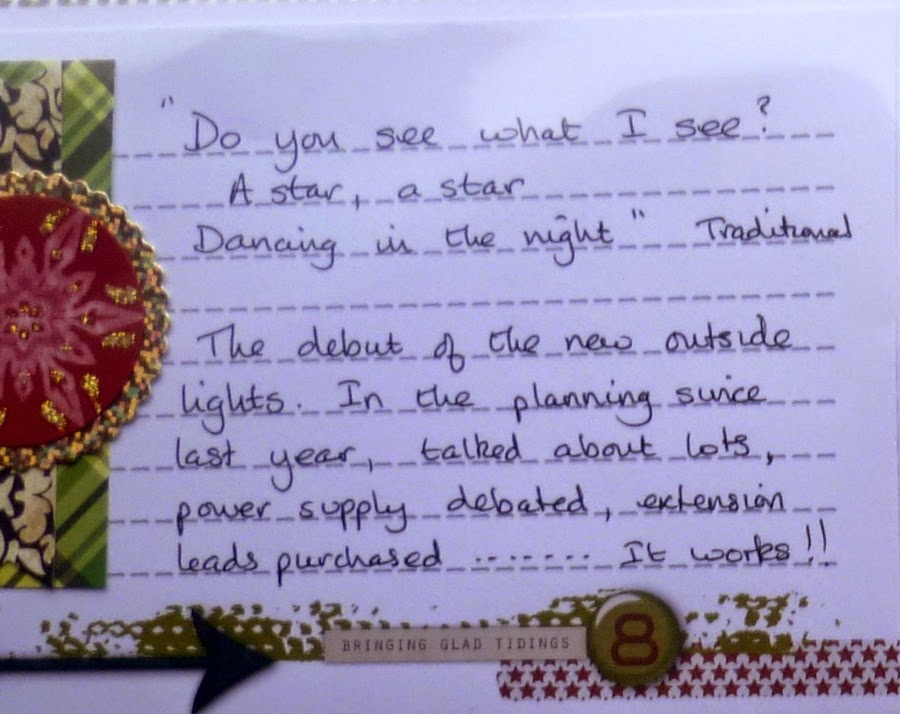 "Do you see what I see?
A star, a star
Dancing in the night" Traditional
The debut of the new outside
lights. In the planning since
last year, talked about lots,
power supply debated, extension
leads purchased ........ It works!!
BRINGING GLAD TIDINGS
8